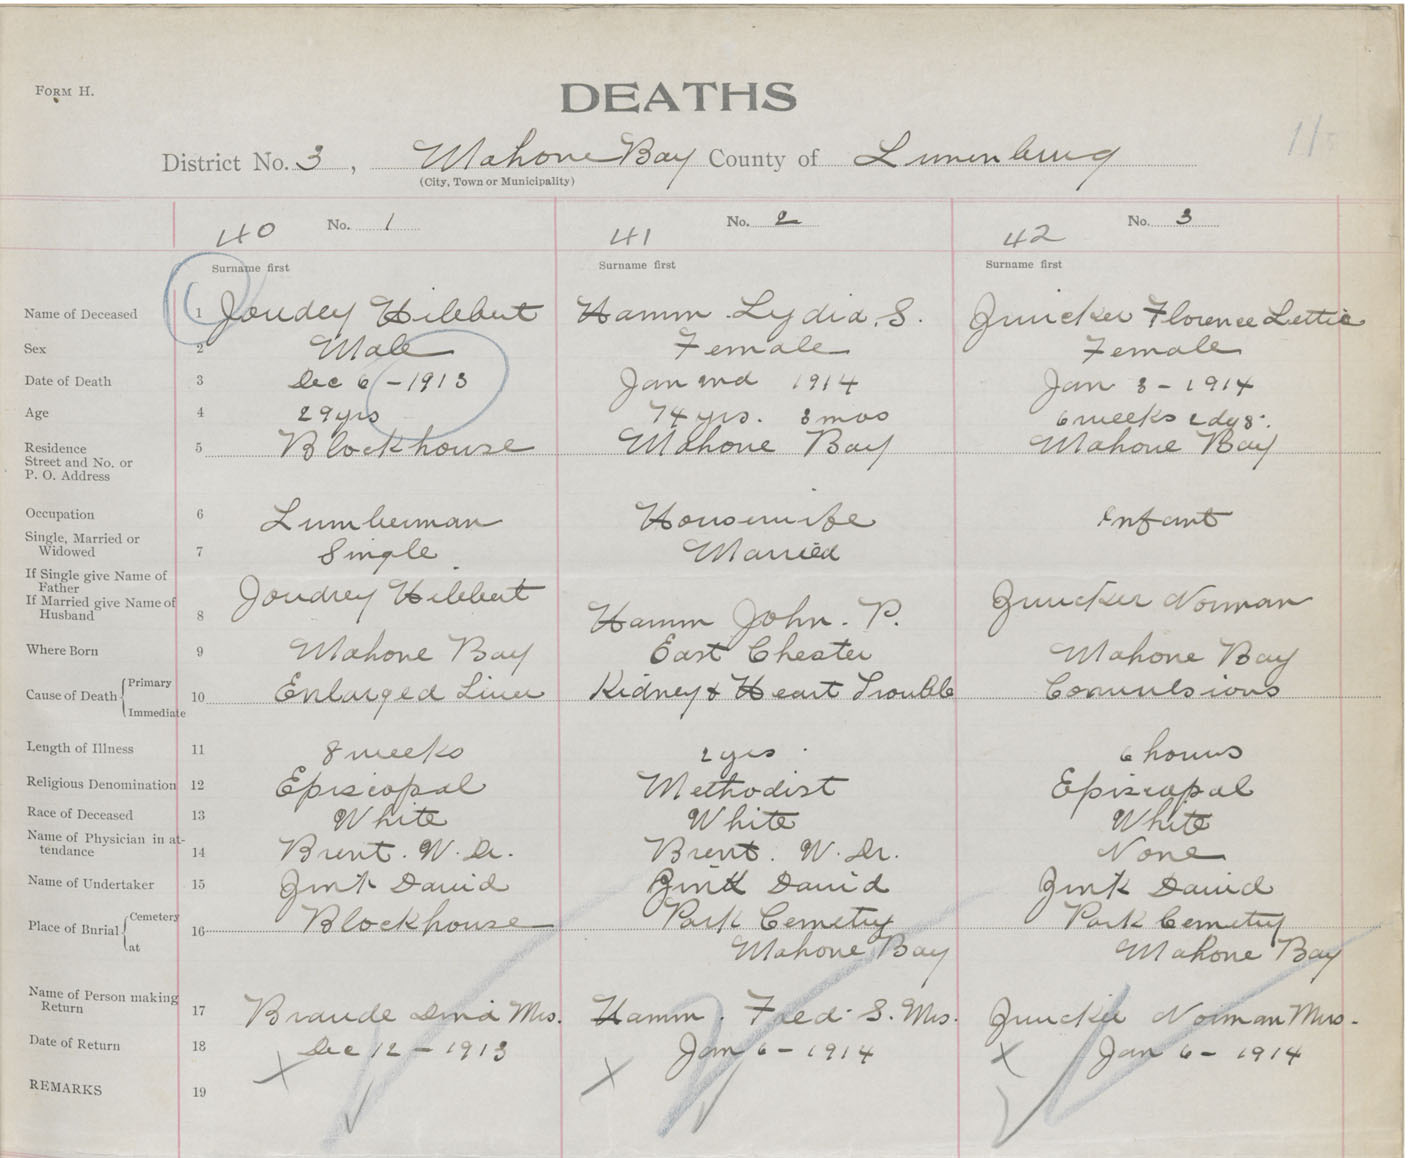 FORM H.
DEATHS
District No. 3, Mahone Bay County of Lunenburg
(City, Town or Municipality)
40 No. 1 41 No. 2 42 No. 3
Surname first Surname first Surname first
Name of Deceased 1 Joudey Hibbert Hamm Lydia. S. Zuicker Florence Lettie
Sex 2 Male Female Female
Date of Death 3 Dec 6 - 1913 Jan 2nd 1914 Jan 3 - 1914
Age 4 29 yrs 74 yrs. 3 mos 6 weeks 2 dys.
Residence Street and No. or P. O. Address 5 Blockhouse Mahone Bay Mahone Bay
Occupation 6 Lumberman Housewife Infant
Single, Married or Widowed 7 Single Married
If Single give Name of Father
If Married give Name of Husband 8 Joudrey Hibbert Hamm John. P. Zuicker Norman
Where Born 9 Mahone Bay East Chester Mahone Bay
Cause of Death Primary Immediate 10 Enlarged Liver Kidney & Heart Trouble Convulsions
Length of Illness 11 8 weeks 2 yrs. 6 hours
Religious Denomination 12 Episcopal Methodist Episcopal
Race of Deceased 13 White White White
Name of Physician in attendance 14 Brent. W. Dr. Brent. W. Dr. None
Name of Undertaker 15 Zink David Zink David Zink David
Place of Burial Cemetery at 16 Blockhouse Park Cemetry Park Cemetry
Mahone Bay Mahone Bay
Name of Person making Return 17 Mrs. Hamm. Fred. S. Mrs. Zuicker Norman Mrs.
Date of Return 18 Dec 12 - 1913 Jan 6 - 1914 Jan 6 - 1914
REMARKS 19